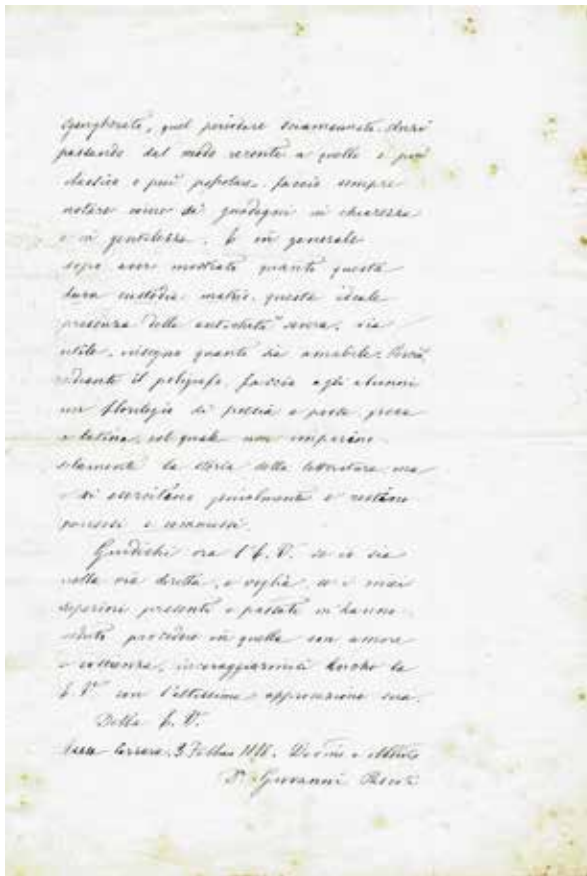 quel periodare Anzi
passando dal modo recente a quello e più
classico e più popolare, faccio sempre
notare come si guadagni in chiarezza
e in gentilezza. E in generale
dopo aver mostrato quanto questa
questa ideale
presenza della antichità sia
utile, insegno quanto sia amabile. Perciò
mediante il poligrafo, faccio agli alunni
un florilegio di poesia e prosa greca
e latina, col quale non imparino
solamente la storia della letteratura, ma
si esercitano genialmente e restano
e commossi.
Giudichi ora l'E. V. se io sia
nella via diretta, e voglia, se i miei
superiori presenti e passati mi hanno
veduto procedere in quella con amore
e costanza, incoraggiarmi anche la
E. V. con l'altissima approvazione sua.
Della E. V.
Massa Carrara, 3 Devmo e
D. Giovanni Pascoli